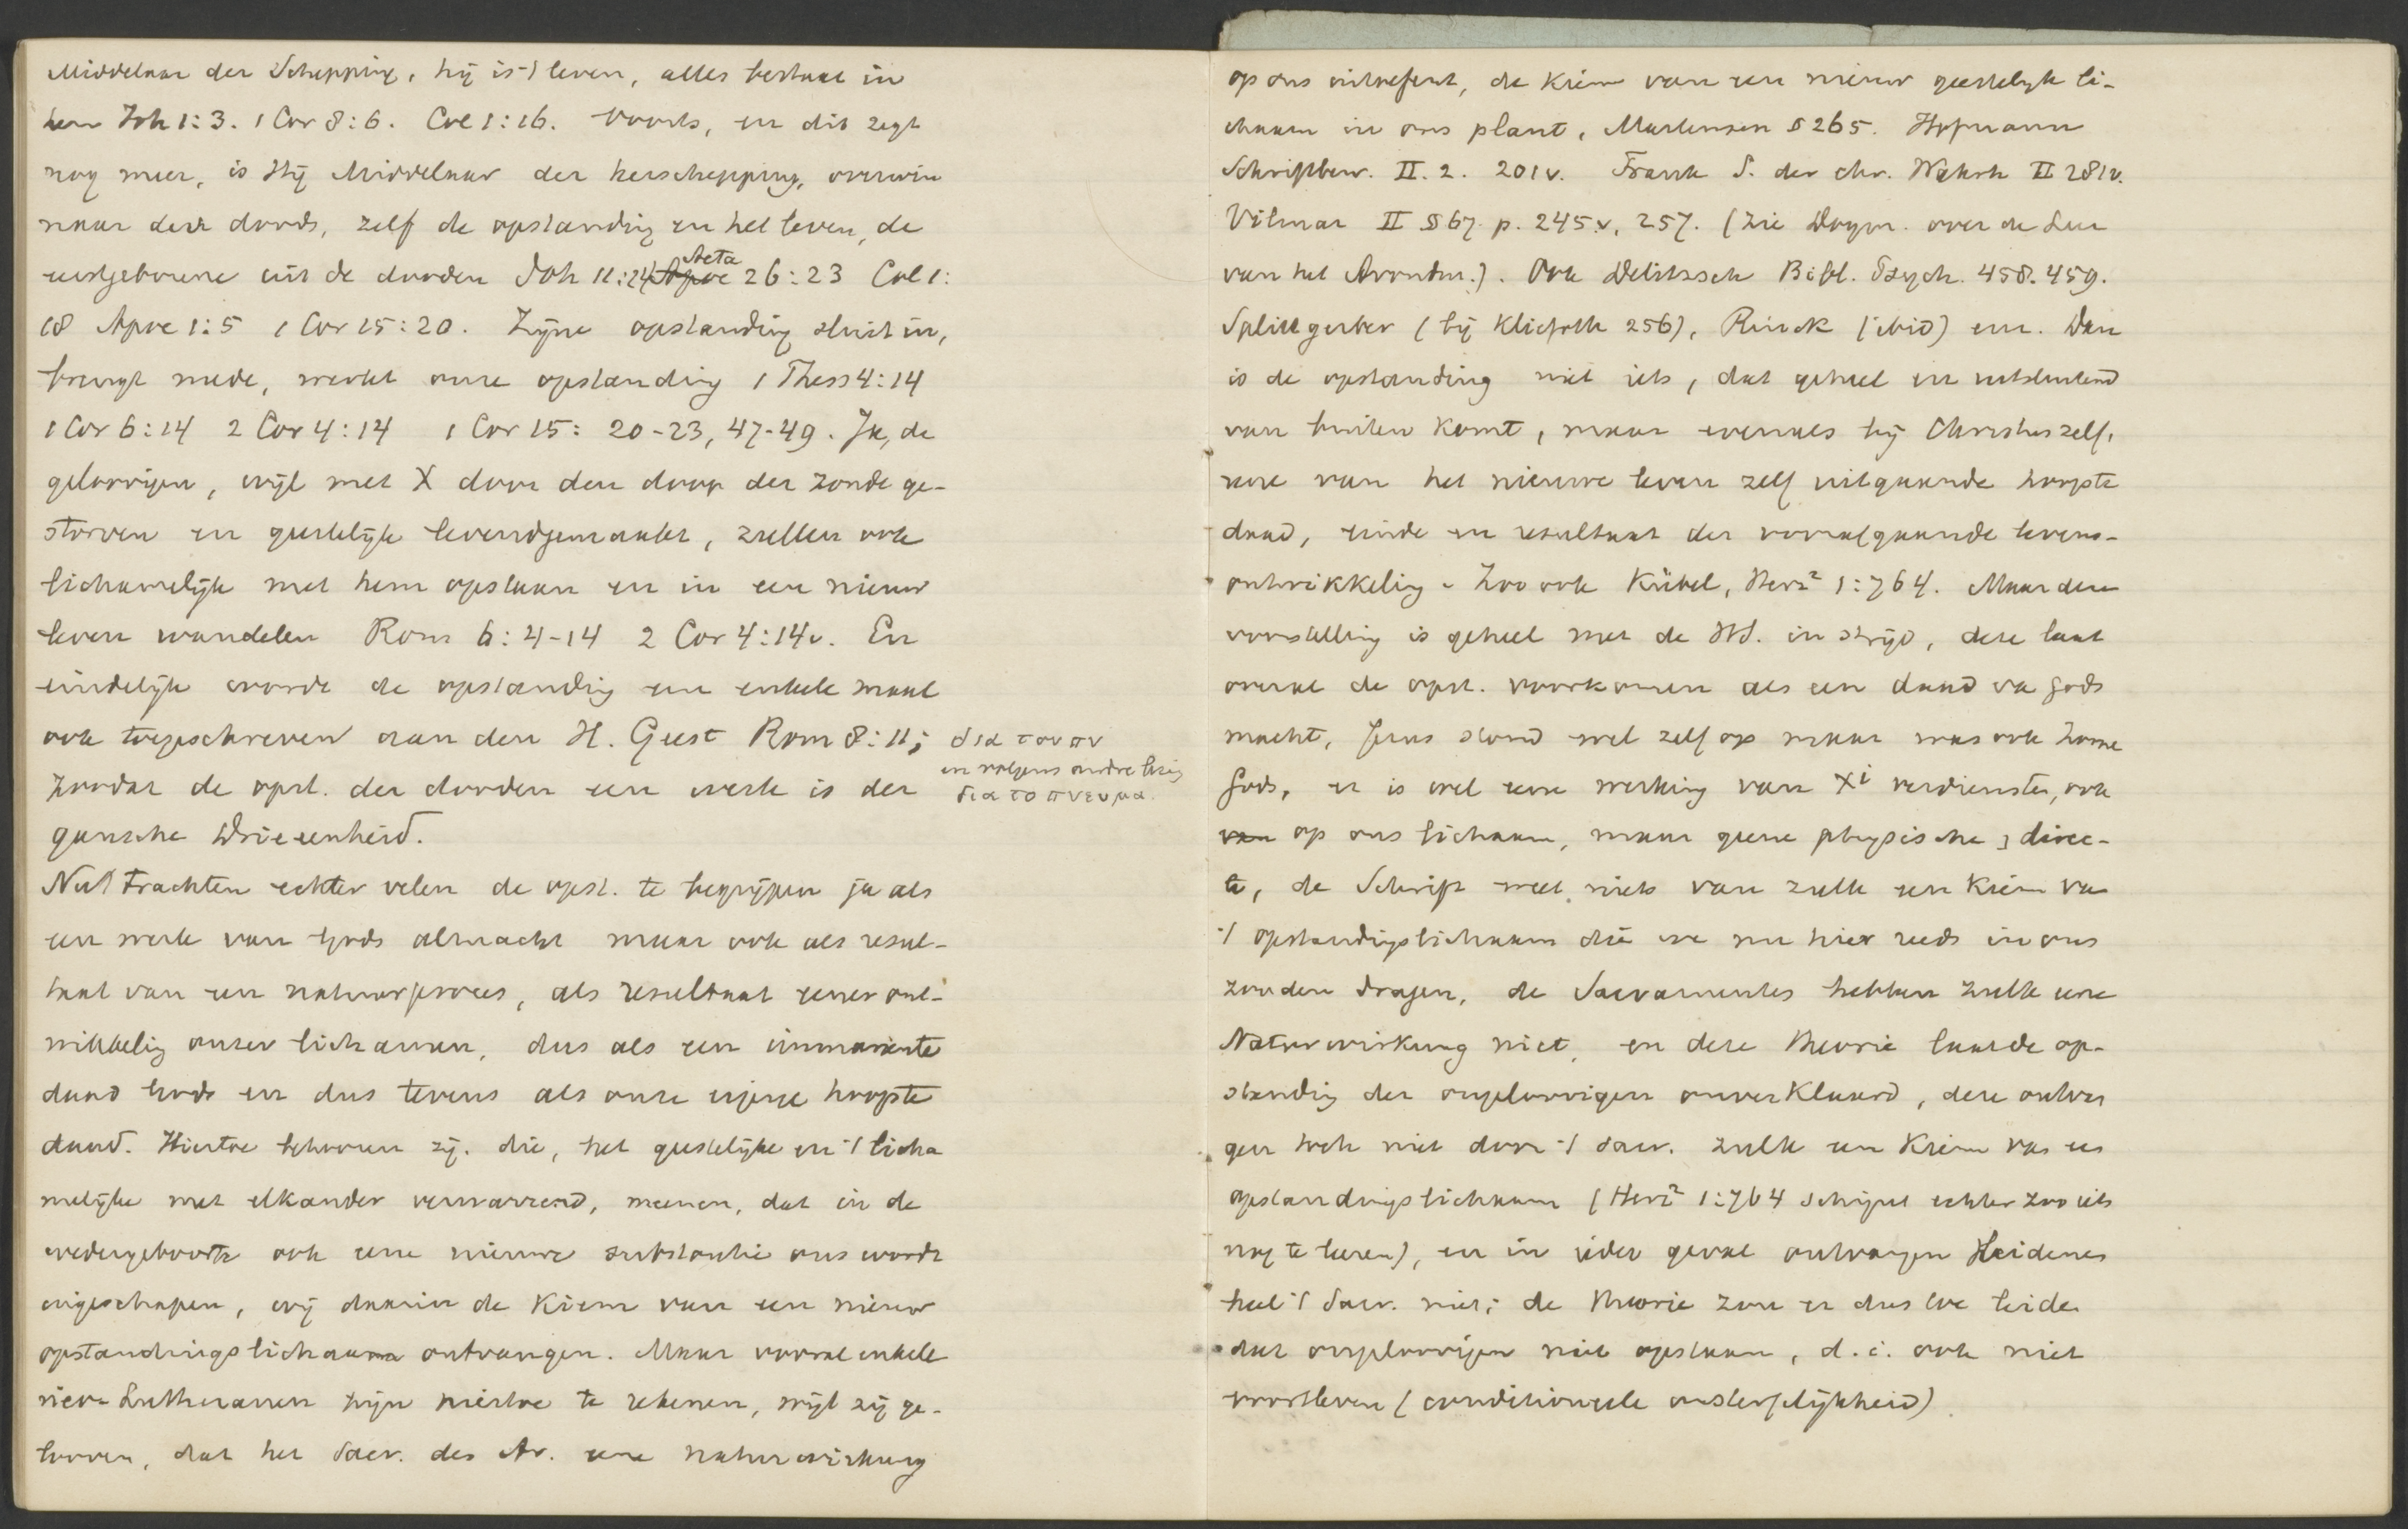 Middelaar der Schepping, hij is 't leven, alles bestaat in
hem Joh 1:3. 1 Cor 8:6. Col 1:16. Voorts, en dit zegt
nog meer, is Hij Middelaar der herschepping, overwin
naar des doods, zelf de opstanding en het leven, de
eerstgeborene uit de dooden Joh 11:24 Acta 26:23 Col 1:
18 Apoc 1:5 1 Cor 15:20. Zijne opstanding sluit in,
brengt mede, werkt onze opstanding 1 Thess 4:14
1 Cor 6:14 2 Cor 4:14 1 Cor 15: 20-23, 47-49. Ja, de
geloovigen, wijl met X door den doop der zonde ge-
storven en geestelijk levendgemaakt, zullen ook
lichamelijk met hem opstaan en in een nieuw
leven wandelen Rom 6:4-14 2 Cor 4:14v. En
eindelijk wordt de opstanding een enkele maal
ook toegeschreven aan den H. Geest Rom 8:11; δια του πν
en volgens andre lezing
zoodat de opst. der dooden een werk is der δια το πνευμα.
gansche Drieeenheid.
Nu trachten echter velen de opst. te begrijpen ja als
een werk van Gods almacht maar ook als resul-
taat van een natuurproces, als resultaat eener ont-
wikkelig onzer lichamen, dus als een immanente
daad Gods en dus tevens als onze eigene hoogste
daad. Hiertoe behooren zij. die, het geestelijke en 't licha
melijke met elkander verwarrend, meenen, dat in de
wedergeboorte ook eene nieuwe substantie ons wordt
ingeschapen, wij daarin de kiem van een nieuw
opstandingslichaam ontvangen. Maar vooral enkele
nieuw Lutheranen zijn hiertoe te rekenen, wijl zij ge-
looven, dat het Sacr. des Av. eene naturwirkung
op ons uitoefent, de kiem van een nieuw geestelijk li-
chaam in ons plant, Martensen § 265. Hofmann
Schriftbew. II. 2. 201v. Frank S. der chr. Wahrh II 281v.
Vilmar II § 67 p. 245.v, 257. (Zie Dogm. over de Leer
van het Avondm.). Ook Delitzsch Bibl. Psych. 458. 459.
Splittgerber (bij Kliefoth 256), Rinck (ibid) enz. Dan
is de opstanding niet iets, dat geheel en uitsluitend
van buiten komt, maar evenals bij Christus zelf,
eene van het nieuwe leven zelf uitgaande hoogste
daad, einde en resultaat der voorafgaande levens-
ontwikkelig. Zoo ook Kübel, Herz² 1:764. Maar deze
voorstelling is geheel met de HS. in strijd, deze laat
overal de opst. voorkomen als een daad va Gods
macht, Jezus stond wel zelf op maar was ook Zone
Gods, er is wel eene werking van Xi verdiensten, ook
van op ons lichaam, maar geene physische, direc-
te, de Schrift weet niets van zulk een kiem va
't opstandingslichaam die we nu hier reeds in ons
zouden dragen, de Sacramentes hebben zulk eene
Naturwirkung niet, en deze theorie laat de op-
standig der ongeloovigen onverklaard, deze ontvan
gen toch niet door 't sacr. zulk een kiem van een
opstandingslichaam (Herz² 1:764 schijnt echter zoo iets
nog te leeren), en in ieder geval ontvangen Heidenen
heel 't Sacr. niet; de theorie zou er dus toe leiden
dat ongeloovigen niet opstaan, d.i. ook niet
voortleven (conditioneele onsterfelijkheid)